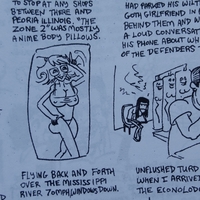 TO STOP AT ANY SHOPS
BETWEEN THERE AND
PEORIA ILLINOIS. "THE
ZONE 2" WAS MOSTLY
ANIME BODY PILLOWS.
HAD FORCED HIS WILT
GOTH GIRLFRIEND IN
BEHIND THEM AND N
A LOUD CONVERSAT
HIS PHONE ABOUT WH
OF THE DEFENDERS
FLYING BACK AND FORTH
OVER THE MISSISSIPPI
RIVER 70MPH, WINDOWS DOWN.
UNFLUSHED TURD
WHEN I ARRIVE
THE ECONOLOD